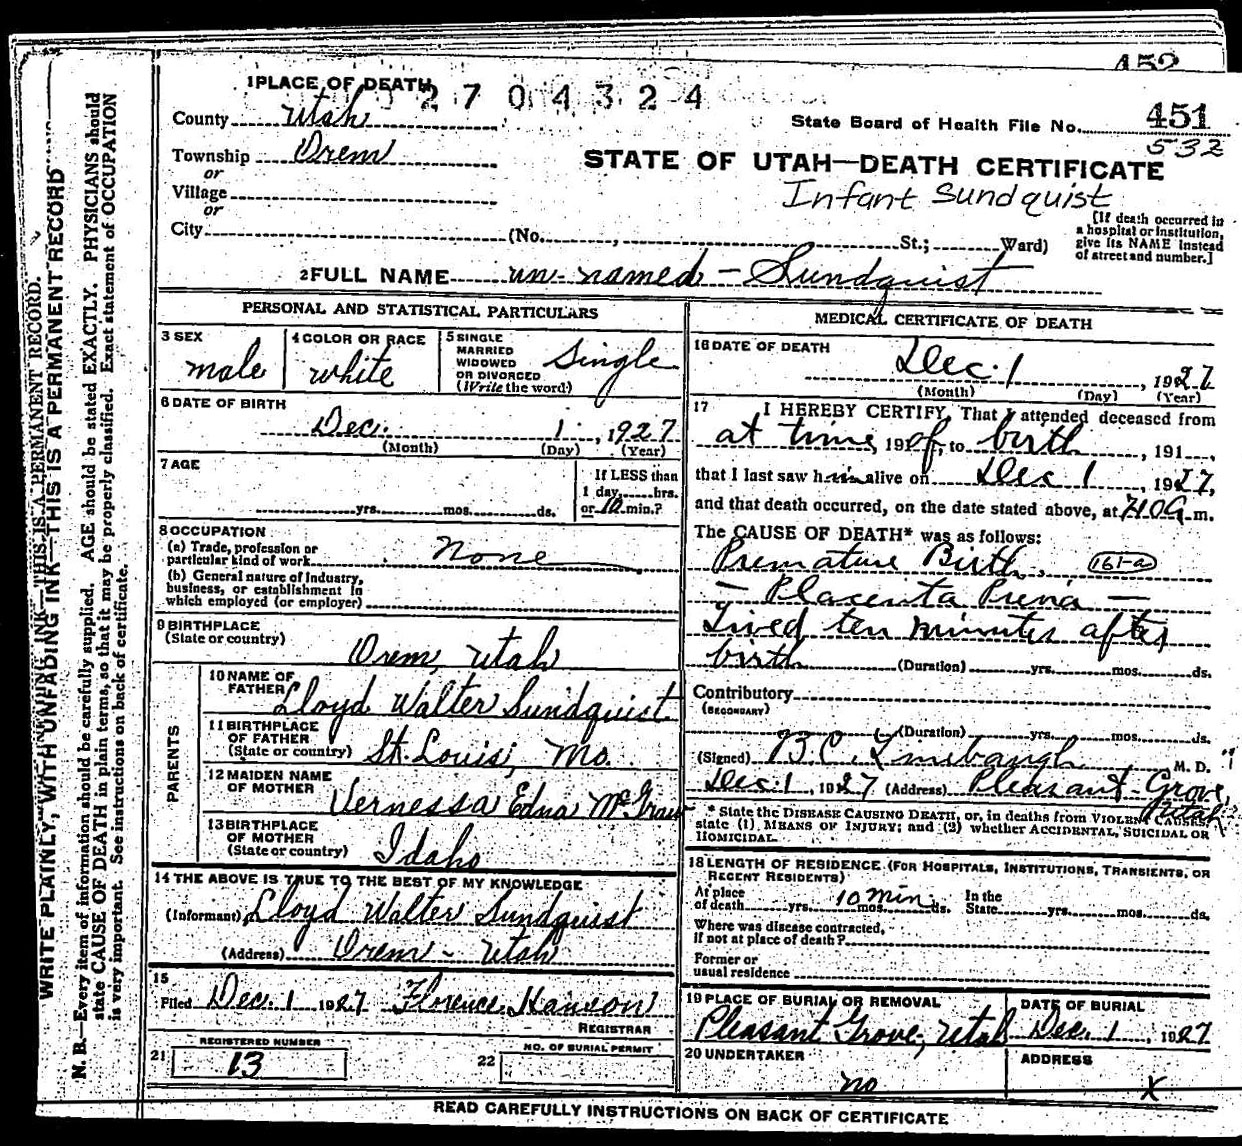 452
1 PLACE OF DEATH 2 7 0 4 3 2 4
County Utah
State Board of Health File No. 451
532
Township Orem
or
STATE OF UTAH—DEATH CERTIFICATE
Village
or
Infant Sundquist
City (No. , St.; Ward)
[If death occurred in a hospital or institution, give its NAME instead of street and number.]
2 FULL NAME un-named - Sundquist
PERSONAL AND STATISTICAL PARTICULARS
3 SEX
male
4 COLOR OR RACE
white
5 SINGLE
MARRIED
WIDOWED
OR DIVORCED
(Write the word)
Single
6 DATE OF BIRTH
Dec. 1 , 1927
(Month) (Day) (Year)
7 AGE
yrs. mos. ds.
If LESS than
1 day, hrs.
or 10 min.?
8 OCCUPATION
(a) Trade, profession or
particular kind of work none
(b) General nature of Industry,
business, or establishment in
which employed (or employer)
9 BIRTHPLACE
(State or country)
Orem, Utah
PARENTS
10 NAME OF
FATHER Lloyd Walter Sundquist
11 BIRTHPLACE
OF FATHER
(State or country) St. Louis, Mo.
12 MAIDEN NAME
OF MOTHER Vernessa Edna McGraw
13 BIRTHPLACE
OF MOTHER
(State or country) Idaho
14 THE ABOVE IS TRUE TO THE BEST OF MY KNOWLEDGE
(Informant) Lloyd Walter Sundquist
(Address) Orem - Utah
15
Filed Dec. 1 1927 Florence Hanson
REGISTRAR
21 REGISTERED NUMBER
13
22 NO. OF BURIAL PERMIT
MEDICAL CERTIFICATE OF DEATH
16 DATE OF DEATH
Dec. 1 , 1927
(Month) (Day) (Year)
17 I HEREBY CERTIFY, That I attended deceased from
at time, 191 of, to birth , 191 ,
that I last saw him alive on Dec 1 , 1927,
and that death occurred, on the date stated above, at 710 a m.
The CAUSE OF DEATH* was as follows:
Premature Birth. 161-a
— Placenta Previa —
Lived ten minutes after
birth (Duration) yrs. mos. ds.
Contributory
(SECONDARY)
(Duration) yrs. mos. ds.
(Signed) B.C. Linebaugh M. D.
Dec. 1 , 1927 (Address) Pleasant Grove,
Utah
* State the DISEASE CAUSING DEATH, or, in deaths from VIOLENT CAUSES,
state (1), MEANS OF INJURY; and (2) whether ACCIDENTAL, SUICIDAL OR
HOMICIDAL.
18 LENGTH OF RESIDENCE (FOR HOSPITALS, INSTITUTIONS, TRANSIENTS, OR
RECENT RESIDENTS)
At place In the
of death yrs. 10 min mos. ds. State yrs. mos. ds.
Where was disease contracted,
if not at place of death?
Former or
usual residence
19 PLACE OF BURIAL OR REMOVAL
Pleasant Grove, Utah
DATE OF BURIAL
Dec. 1 , 1927
20 UNDERTAKER
no
ADDRESS
X
READ CAREFULLY INSTRUCTIONS ON BACK OF CERTIFICATE
WRITE PLAINLY, WITH UNFADING INK—THIS IS A PERMANENT RECORD
N. B.—Every item of information should be carefully supplied. AGE should be stated EXACTLY. PHYSICIANS should
state CAUSE OF DEATH in plain terms, so that it may be properly classified. Exact statement of OCCUPATION
is very important. See instructions on back of certificate.